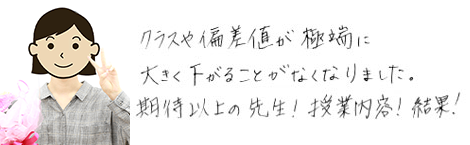 クラスや偏差値が極端に
大きく下がることがなくなりました。
期待以上の先生！授業内容！結果！